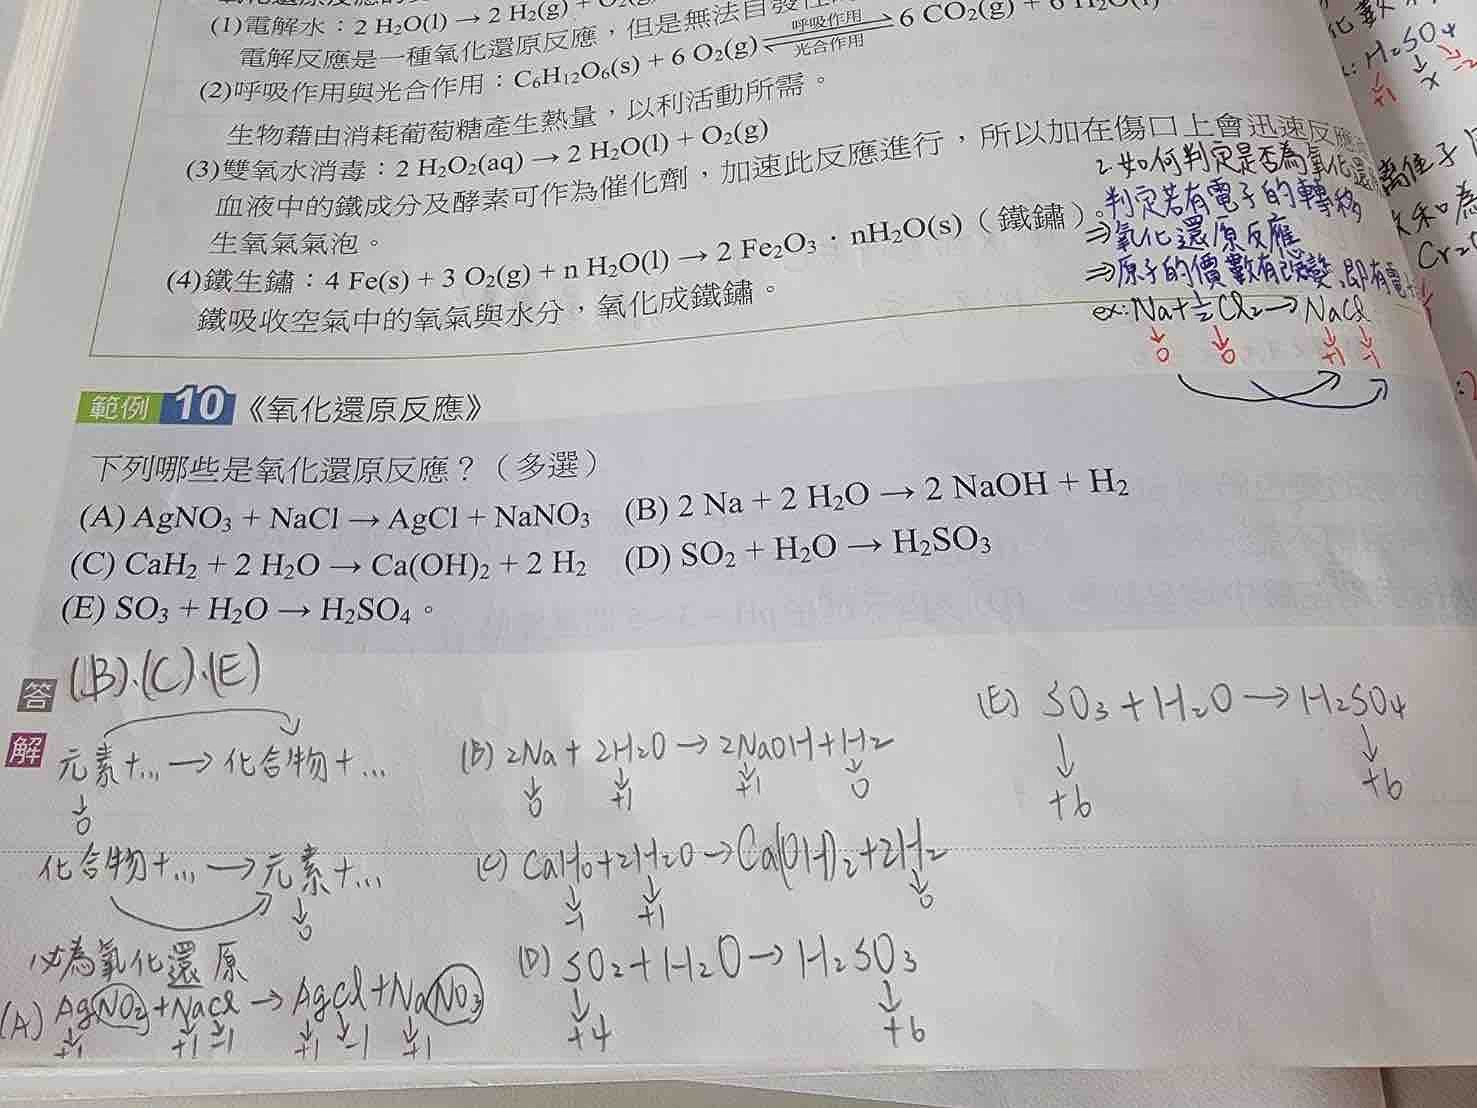 (1)電解水：2 H₂O(l) → 2 H₂(g) +
電解反應是一種氧化還原反應，但是無法自發
(2)呼吸作用與光合作用：C₆H₁₂O₆(s) + 6 O₂(g) 呼吸作用 光合作用 6 CO₂(g) + 6 H₂O(l)
生物藉由消耗葡萄糖產生熱量，以利活動所需。
(3)雙氧水消毒：2 H₂O₂(aq) → 2 H₂O(l) + O₂(g)
血液中的鐵成分及酵素可作為催化劑，加速此反應進行，所以加在傷口上會迅速反應
生氧氣氣泡。
(4)鐵生鏽：4 Fe(s) + 3 O₂(g) + n H₂O(l) → 2 Fe₂O₃．nH₂O(s)（鐵鏽）。
鐵吸收空氣中的氧氣與水分，氧化成鐵鏽。
2.如何判定是否為氧化還
判定若有電子的轉移
⇒氧化還原反應
⇒原子的價數有改變、即有電
ex:Na+½Cl₂→NaCl
↓0 ↓0 ↓+1 ↓-1
H₂SO₄
↓+1 ↓x ↓-2
範例 10《氧化還原反應》
下列哪些是氧化還原反應？（多選）
(A) AgNO₃ + NaCl → AgCl + NaNO₃ (B) 2 Na + 2 H₂O → 2 NaOH + H₂
(C) CaH₂ + 2 H₂O → Ca(OH)₂ + 2 H₂ (D) SO₂ + H₂O → H₂SO₃
(E) SO₃ + H₂O → H₂SO₄。
答 (B).(C).(E)
解 元素+... → 化合物+...
↓0
化合物+... → 元素+...
↓0
必為氧化還原
(A) AgNO₃+NaCl → AgCl+NaNO₃
↓+1 ↓+1 ↓-1 ↓+1 ↓-1 ↓+1
(B) 2Na + 2H₂O → 2NaOH+H₂
↓0 ↓+1 ↓+1 ↓0
(C) CaH₂+2H₂O→Ca(OH)₂+2H₂
↓-1 ↓+1 ↓0
(D) SO₂+H₂O→H₂SO₃
↓+4 ↓+6
(E) SO₃+H₂O→H₂SO₄
↓+6 ↓+6